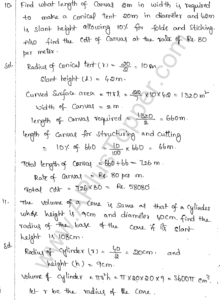 10. Find what length of canvas 2m in width is required
to make a conical tent 20m in diameter and 42m
in slant height allowing 10% for folds and stiching
Also find the cost of canvas at the rate of Rs 80
per meter.
Sol. Radius of Conical tent (r) = 20/2 = 10m
Slant height (l) = 42m.
Curved Surface area = πrl = 22/7 × 10 × 42 = 1320 m²
Width of Canvas = 2m
length of Canvas required = 1320/2 = 660m
length of Canvas for structuring and cutting
= 10% of 660 10/100 × 660 = 66m.
Total length of Canvas = 660 + 66 = 726m.
Rate of Canvas = Rs. 80 per m.
Total Cost = 726 × 80 = Rs. 58080
11. The volume of a cone is same as that of a cylinder
whose height is 9cm and diameter 40cm, find the
radius of the base of the cone if its slant
height is 108cm.
Sol. Radius of Cylinder (r) = 40/2 = 20cm and
height (h) = 9cm.
Volume of Cylinder = πr²h = π × 20 × 20 × 9 = 3600π cm³
Let r be the radius of the Cone.